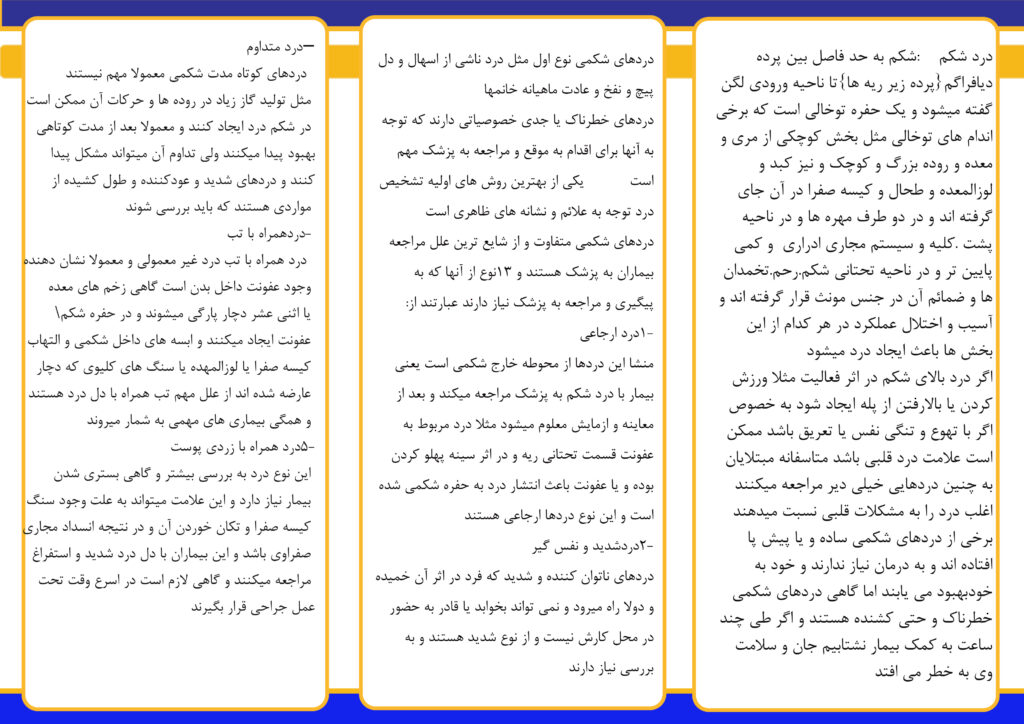 درد شکم    :شکم به حد فاصل بین پرده
دیافراگم {پرده زیر ریه ها}تا ناحیه ورودی لگن
گفته میشود و یک حفره توخالی است که برخی
اندام های توخالی مثل بخش کوچکی از مری و
معده و روده بزرگ و کوچک و نیز کبد و
لوزالمعده و طحال و کیسه صفرا در آن جای
گرفته اند و در دو طرف مهره ها و در ناحیه
پشت .کلیه و سیستم مجاری ادراری  و کمی
پایین تر و در ناحیه تحتانی شکم.رحم.تخمدان
ها و ضمائم آن در جنس مونث قرار گرفته اند و
آسیب و اختلال عملکرد در هر کدام از این
بخش ها باعث ایجاد درد میشود
اگر درد بالای شکم در اثر فعالیت مثلا ورزش
کردن یا بالارفتن از پله ایجاد شود به خصوص
اگر با تهوع و تنگی نفس یا تعریق باشد ممکن
است علامت درد قلبی باشد متاسفانه مبتلایان
به چنین دردهایی خیلی دیر مراجعه میکنند
اغلب درد را به مشکلات قلبی نسبت میدهند
برخی از دردهای شکمی ساده و یا پیش پا
افتاده اند و به درمان نیاز ندارند و خود به
خودبهبود می یابند اما گاهی دردهای شکمی
خطرناک و حتی کشنده هستند و اگر طی چند
ساعت به کمک بیمار نشتابیم جان و سلامت
وی به خطر می افتد
دردهای شکمی نوع اول مثل درد ناشی از اسهال و دل
پیچ و نفخ و عادت ماهیانه خانمها
دردهای خطرناک یا جدی خصوصیاتی دارند که توجه
به آنها برای اقدام به موقع و مراجعه به پزشک مهم
است        یکی از بهترین روش های اولیه تشخیص
درد توجه به علائم و نشانه های ظاهری است
دردهای شکمی متفاوت و از شایع ترین علل مراجعه
بیماران به پزشک هستند و ۱۳نوع از آنها که به
پیگیری و مراجعه به پزشک نیاز دارند عبارتند از:
-۱درد ارجاعی
منشا این دردها از محوطه خارج شکمی است یعنی
بیمار با درد شکم به پزشک مراجعه میکند و بعد از
معاینه و ازمایش معلوم میشود مثلا درد مربوط به
عفونت قسمت تحتانی ریه و در اثر سینه پهلو کردن
بوده و یا عفونت باعث انتشار درد به حفره شکمی شده
است و این نوع دردها ارجاعی هستند
-۲دردشدید و نفس گیر
دردهای ناتوان کننده و شدید که فرد در اثر آن خمیده
و دولا راه میرود و نمی تواند بخوابد یا قادر به حضور
در محل کارش نیست و از نوع شدید هستند و به
بررسی نیاز دارند
–درد متداوم
دردهای کوتاه مدت شکمی معمولا مهم نیستند
مثل تولید گاز زیاد در روده ها و حرکات آن ممکن است
در شکم درد ایجاد کنند و معمولا بعد از مدت کوتاهی
بهبود پیدا میکنند ولی تداوم آن میتواند مشکل پیدا
کنند و دردهای شدید و عودکننده و طول کشیده از
مواردی هستند که باید بررسی شوند
-دردهمراه با تب
درد همراه با تب درد غیر معمولی و معمولا نشان دهنده
وجود عفونت داخل بدن است گاهی زخم های معده
یا اثنی عشر دچار پارگی میشوند و در حفره شکم\
عفونت ایجاد میکنند و ابسه های داخل شکمی و التهاب
کیسه صفرا یا لوزالمهده یا سنگ های کلیوی که دچار
عارضه شده اند از علل مهم تب همراه با دل درد هستند
و همگی بیماری های مهمی به شمار میروند
-۵درد همراه با زردی پوست
این نوع درد به بررسی بیشتر و گاهی بستری شدن
بیمار نیاز دارد و این علامت میتواند به علت وجود سنگ
کیسه صفرا و تکان خوردن آن و در نتیجه انسداد مجاری
صفراوی باشد و این بیماران با دل درد شدید و استفراغ
مراجعه میکنند و گاهی لازم است در اسرع وقت تحت
عمل جراحی قرار بگیرند